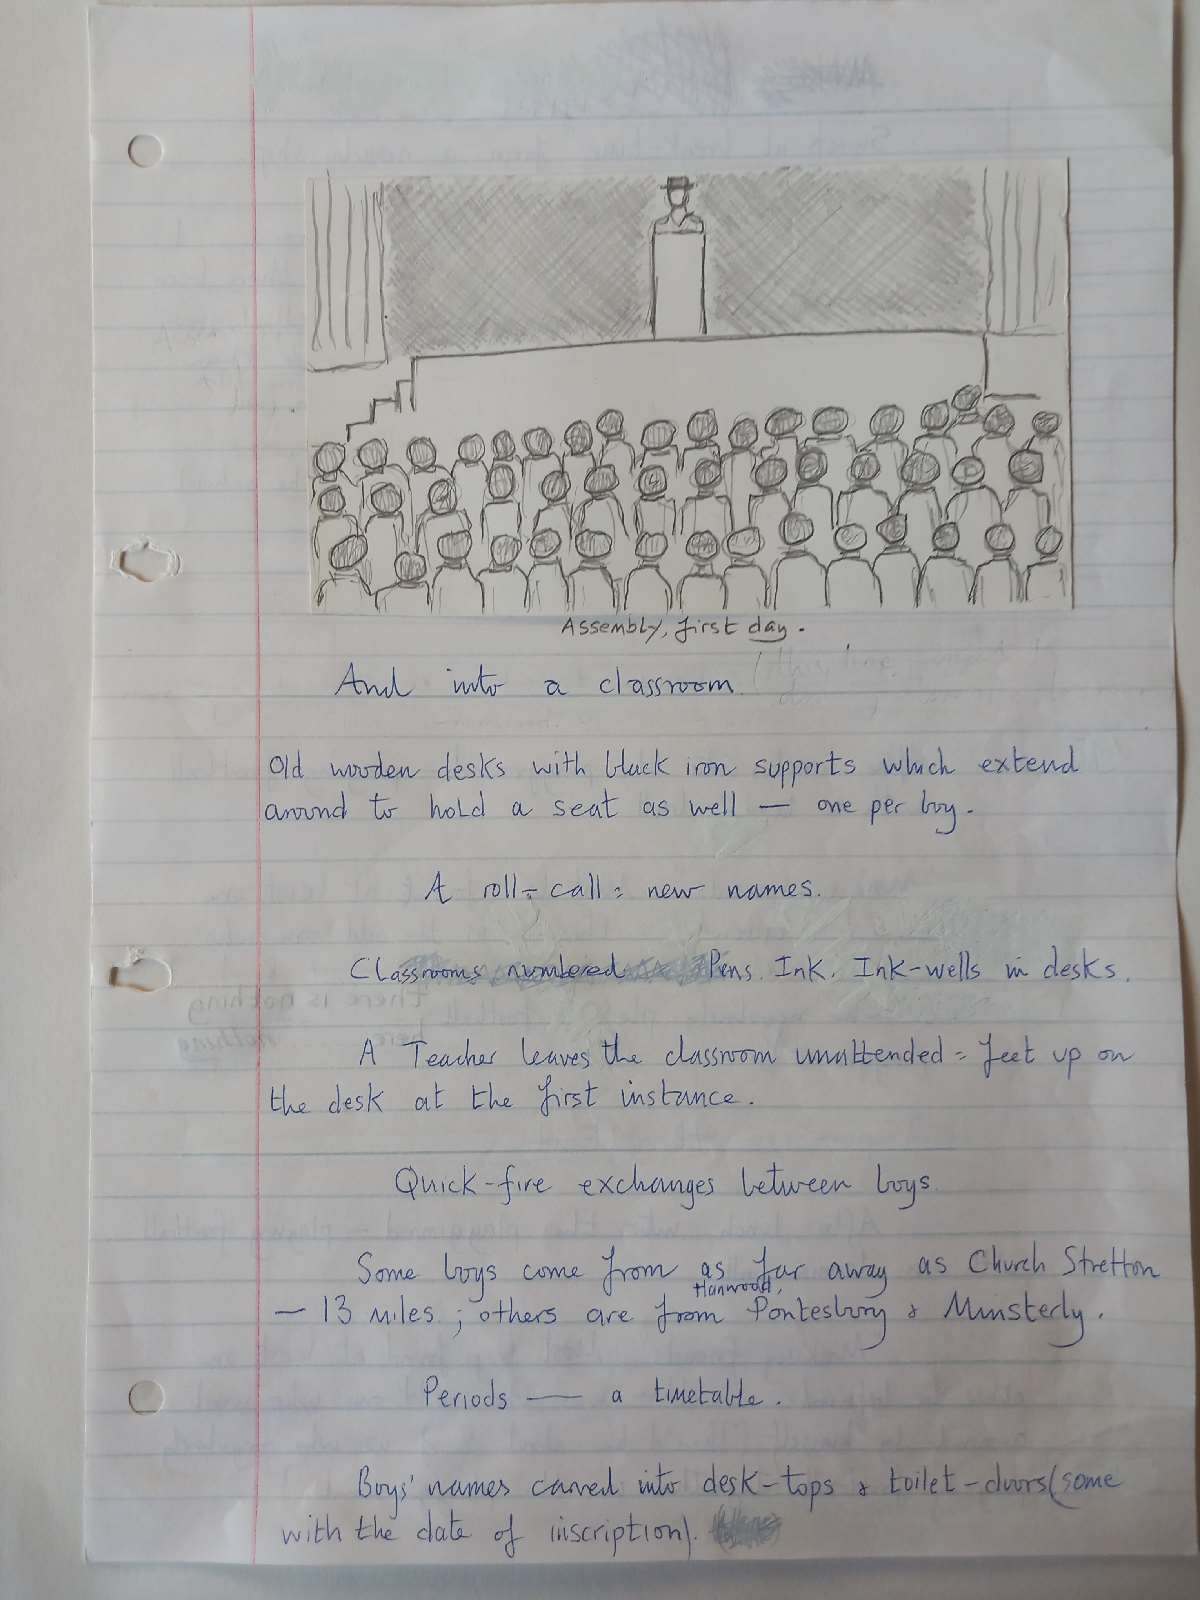 Assembly, first day.
And into a classroom.
Old wooden desks with black iron supports which extend
around to hold a seat as well — one per boy.
A roll-call = new names.
Classrooms numbered Pens. Ink. Ink-wells in desks.
A Teacher leaves the classroom unattended = feet up on
the desk at the first instance.
Quick-fire exchanges between boys.
Some boys come from as far away as Church Stretton
— 13 miles ; others are from Hanwood, Pontesbury & Minsterly.
Periods — a timetable.
Boys' names carved into desk-tops & toilet-doors (some
with the date of inscription).
There is nothing
here ... nothing